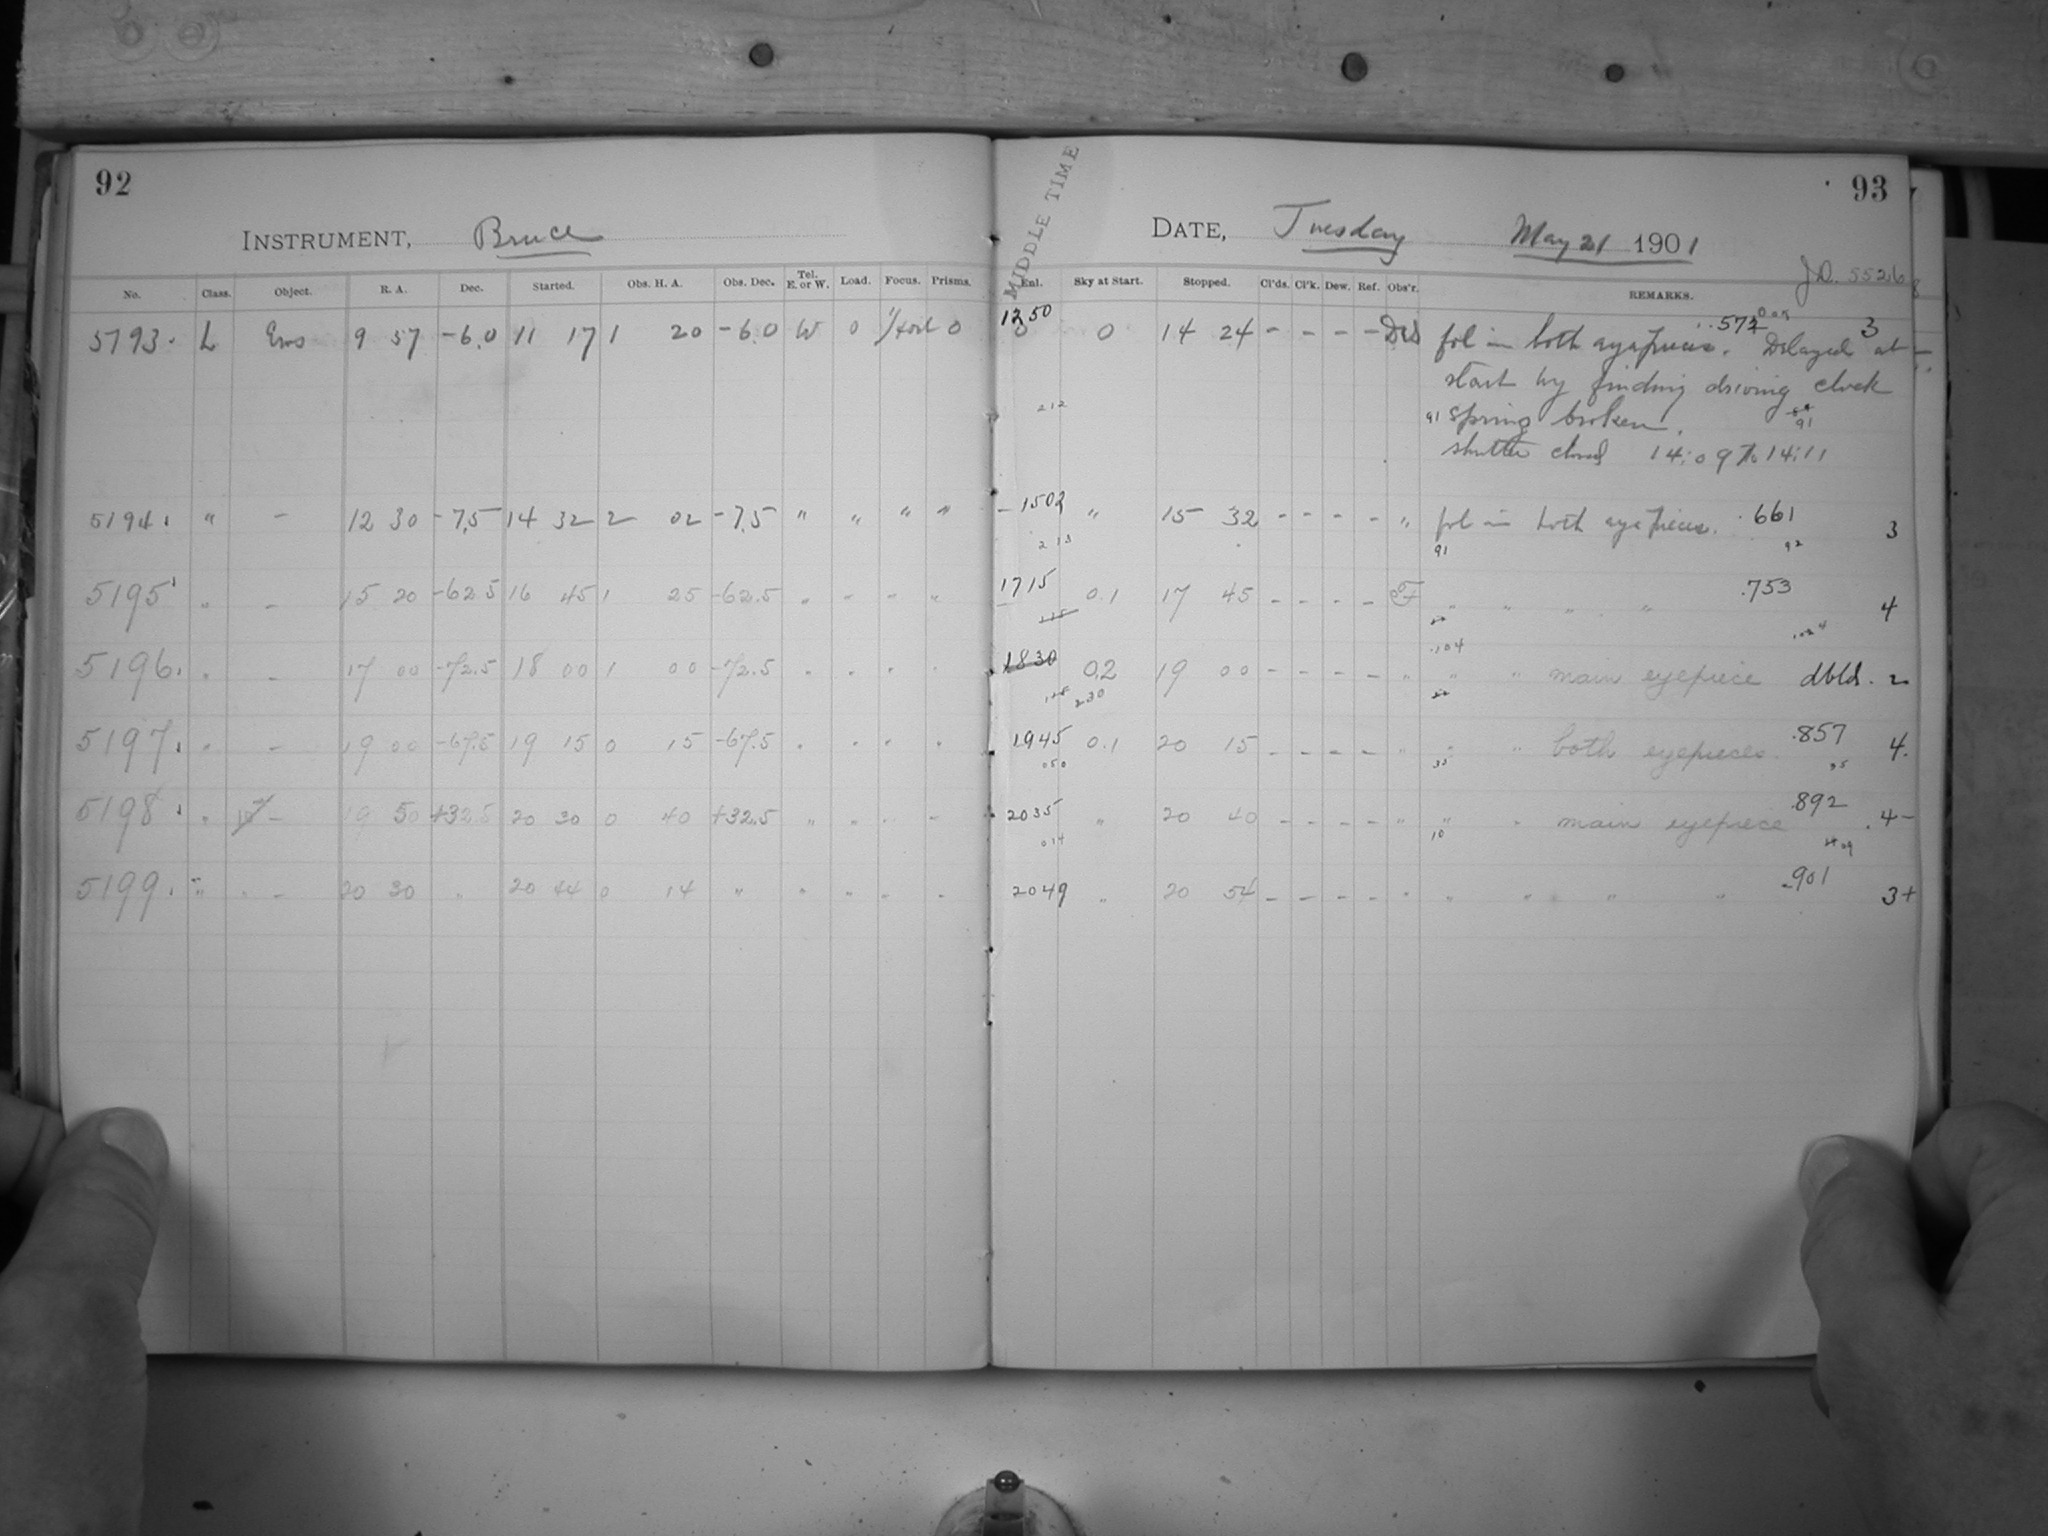 92
93
MIDDLE TIME
INSTRUMENT, Bruce
DATE, Tuesday May 21 1901
J.D. 5526
No. Class. Object. R. A. Dec. Started. Obs. H. A. Obs. Dec. Tel. E. or W. Load. Focus. Prisms. Enl. Sky at Start. Stopped. Cl'ds. Cl'k. Dew. Ref. Obs'r. REMARKS.
5193. L Eros 9 57 -6.0 11 17 1 20 -6.0 W 0 0 1250 0 14 24 - - - - fol in both eyepieces. Delayed at 3
start by finding driving clock
212
91 spring broken. 91
shutter closed 14:09 to 14:11
5194. " - 12 30 -7.5 14 32 2 02 -7.5 " " " " 1502 " 15 32 - - - - " fol in both eyepieces. .661 3
213 91 92
5195 " - 15 20 -62.5 16 45 1 25 -62.5 " " " " 1715 0.1 17 45 - - - - F " " " " .753 4
.104
5196. " - 17 00 -72.5 18 00 1 00 -72.5 " " " " 1830 0.2 19 00 - - - - " " " main eyepiece dbld. 2
230
5197. " - 19 00 -67.5 19 15 0 15 -67.5 " " " " 1945 0.1 20 15 - - - - " " " both eyepieces. .857 4.
050 35 35
5198. " - 19 50 +32.5 20 30 0 40 +32.5 " " " " 2035 " 20 40 - - - - " " " main eyepiece .892 4-
014 10 09
5199. " " - 20 30 " 20 44 0 14 " " " " " 2049 " 20 54 - - - - " " " " " .901 3+